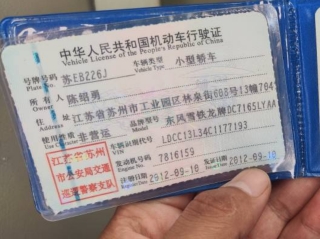 中华人民共和国机动车行驶证
Vehicle License of the People's Republic of China
号牌号码 苏EB226J 车辆类型 小型轿车
Plate No. Vehicle Type
所有人 陈顺勇
Owner
住址 江苏省苏州市工业园区林泉街603号13幢704
Address
使用性质 非营运 品牌型号 东风雪铁龙牌DC7165LYAA
Use Character Model
车辆识别代号 LDCC13L34C1177193
VIN
江苏省苏州市公安局交通巡逻警察支队
发动机号码 7816159
Engine No.
注册日期 2012-09-10 发证日期 2012-09-10